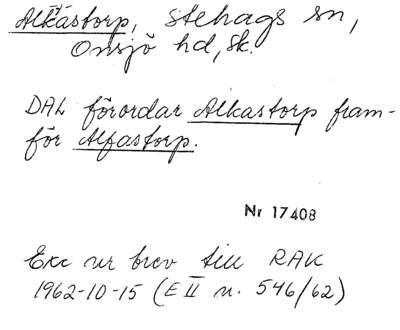 Alkastorp, Stehags sn,
Onsjö hd, Sk.
DAL förordar Alkastorp fram-
för Alfastorp.
Nr 17408
Exc ur brev till RAK
1962-10-15 (E II n. 546/62)